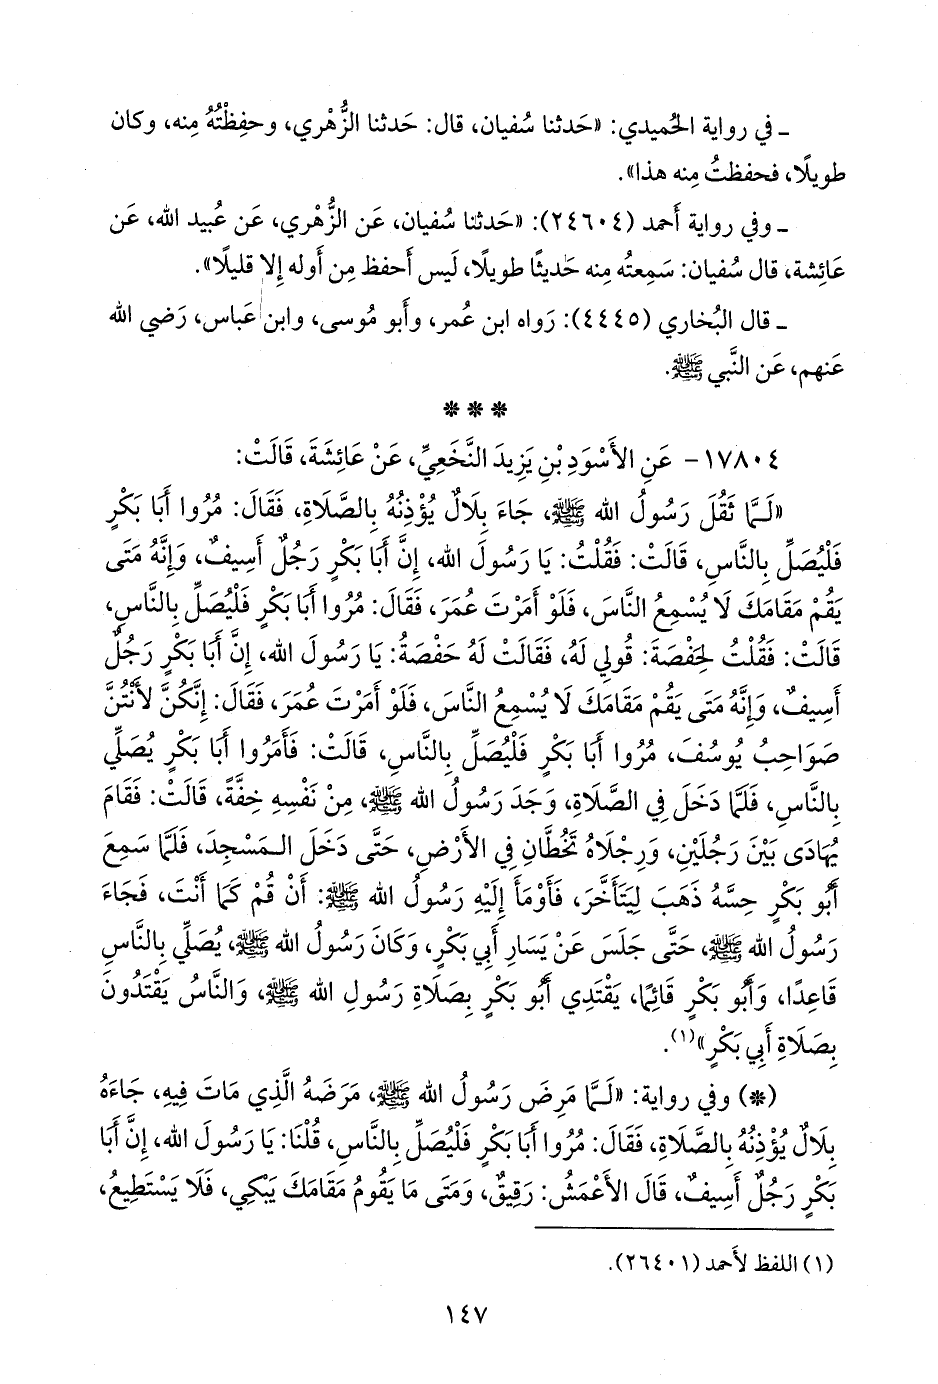 ـ في رواية الحُميدي: «حَدثنا سُفيان، قال: حَدثنا الزُّهْري، وحفِظْتُهُ مِنه، وكان
طويلًا، فحفظتُ مِنه هذا».
ـ وفي رواية أَحمد (٢٤٦٠٤): «حَدثنا سُفيان، عَن الزُّهْري، عَن عُبيد الله، عَن
عَائِشة، قال سُفيان: سَمِعتُه مِنه حَديثًا طويلًا، لَيس أَحفظ مِن أَوله إِلا قليلًا».
ـ قال البُخاري (٤٤٤٥): رَواه ابن عُمر، وأَبو مُوسى، وابن عَباس، رَضي الله
عَنهم، عَن النَّبي ﷺ.
* * *
١٧٨٠٤- عَنِ الأَسْوَدِ بْنِ يَزِيدَ النَّخَعِيِّ، عَنْ عَائِشَةَ، قَالَتْ:
«لَـمَّا ثَقُلَ رَسُولُ الله ﷺ، جَاءَ بِلَالٌ يُؤْذِنُهُ بِالصَّلَاةِ، فَقَالَ: مُرُوا أَبَا بَكْرٍ
فَلْيُصَلِّ بِالنَّاسِ، قَالَتْ: فَقُلْتُ: يَا رَسُولَ الله، إِنَّ أَبَا بَكْرٍ رَجُلٌ أَسِيفٌ، وَإِنَّهُ مَتَى
يَقُمْ مَقَامَكَ لَا يُسْمِعُ النَّاسَ، فَلَوْ أَمَرْتَ عُمَرَ، فَقَالَ: مُرُوا أَبَا بَكْرٍ فَلْيُصَلِّ بِالنَّاسِ،
قَالَتْ: فَقُلْتُ لِحَفْصَةَ: قُولِي لَهُ، فَقَالَتْ لَهُ حَفْصَةُ: يَا رَسُولَ الله، إِنَّ أَبَا بَكْرٍ رَجُلٌ
أَسِيفٌ، وَإِنَّهُ مَتَى يَقُمْ مَقَامَكَ لَا يُسْمِعُ النَّاسَ، فَلَوْ أَمَرْتَ عُمَرَ، فَقَالَ: إِنَّكُنَّ لأَنْتُنَّ
صَوَاحِبُ يُوسُفَ، مُرُوا أَبَا بَكْرٍ فَلْيُصَلِّ بِالنَّاسِ، قَالَتْ: فَأَمَرُوا أَبَا بَكْرٍ يُصَلِّي
بِالنَّاسِ، فَلَمَّا دَخَلَ فِي الصَّلَاةِ، وَجَدَ رَسُولُ الله ﷺ، مِنْ نَفْسِهِ خِفَّةً، قَالَتْ: فَقَامَ
يُهَادَى بَيْنَ رَجُلَيْنِ، وَرِجْلَاهُ تَخُطَّانِ فِي الأَرْضِ، حَتَّى دَخَلَ الـمَسْجِدَ، فَلَمَّا سَمِعَ
أَبُو بَكْرٍ حِسَّهُ ذَهَبَ لِيَتَأَخَّرَ، فَأَوْمَأَ إِلَيْهِ رَسُولُ الله ﷺ: أَنْ قُمْ كَمَا أَنْتَ، فَجَاءَ
رَسُولُ الله ﷺ، حَتَّى جَلَسَ عَنْ يَسَارِ أَبِي بَكْرٍ، وَكَانَ رَسُولُ الله ﷺ، يُصَلِّي بِالنَّاسِ
قَاعِدًا، وَأَبُو بَكْرٍ قَائِمًا، يَقْتَدِي أَبُو بَكْرٍ بِصَلَاةِ رَسُولِ الله ﷺ، وَالنَّاسُ يَقْتَدُونَ
بِصَلَاةِ أَبِي بَكْرٍ»(١).
(*) وفي رواية: «لَـمَّا مَرِضَ رَسُولُ الله ﷺ، مَرَضَهُ الَّذِي مَاتَ فِيهِ، جَاءَهُ
بِلَالٌ يُؤْذِنُهُ بِالصَّلَاةِ، فَقَالَ: مُرُوا أَبَا بَكْرٍ فَلْيُصَلِّ بِالنَّاسِ، قُلْنَا: يَا رَسُولَ الله، إِنَّ أَبَا
بَكْرٍ رَجُلٌ أَسِيفٌ، قَالَ الأَعْمَشُ: رَقِيقٌ، وَمَتَى مَا يَقُومُ مَقَامَكَ يَبْكِي، فَلَا يَسْتَطِيعُ،
(١) اللفظ لأَحمد (٢٦٤٠١).
١٤٧